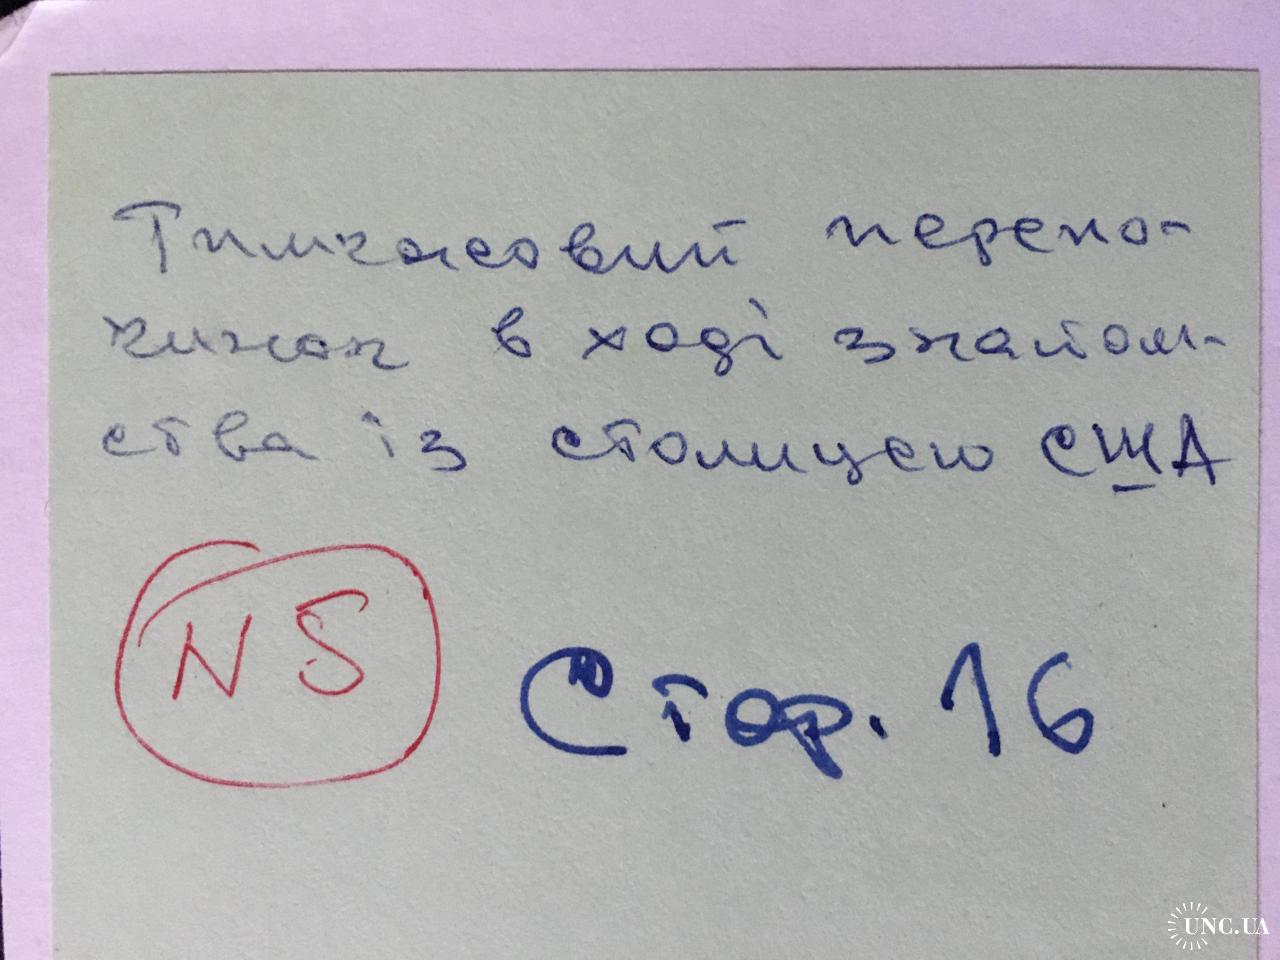 Тимчасовий перепо-
чинок в ході знайом-
ства із столицею США
NS
Стор. 16
UNC.UA